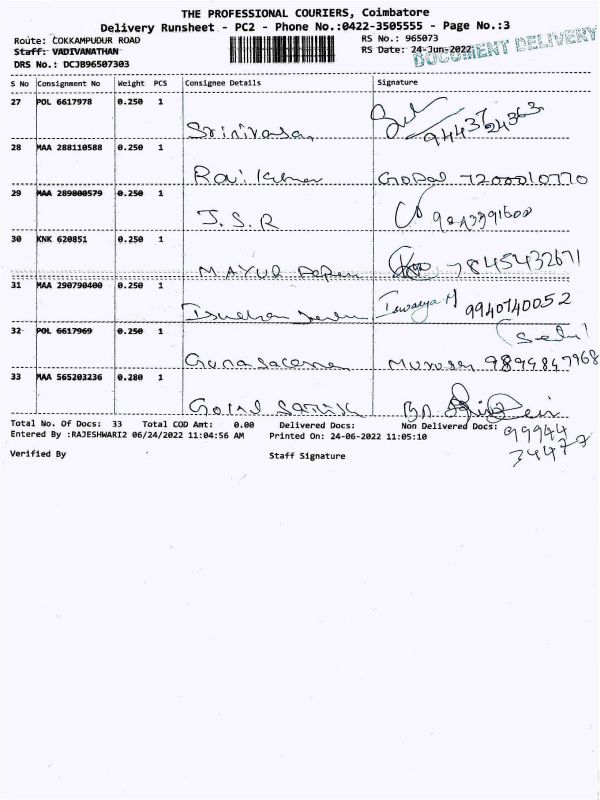 THE PROFESSIONAL COURIERS, Coimbatore
Delivery Runsheet - PC2 - Phone No.:0422-3505555 - Page No.:3
Route: COKKAMPUDUR ROAD RS No.: 965073
Staff: VADIVANATHAN RS Date: 24-Jun-2022 DOCUMENT DELIVERY
DRS No.: DCJB96507303
S No Consignment No Weight PCS Consignee Details Signature
27 POL 6617978 0.250 1
Srinivasan 9443724363
28 MAA 288110588 0.250 1
Ravi Kumar Gopal 7200010770
29 MAA 289800579 0.250 1
J.S.R
30 KNK 620851 0.250 1
MAYUR 7845432671
31 MAA 290790400 0.250 1
Iswarya M 9940740052
32 POL 6617969 0.250 1 Selvi
Gunasacaran Murugan 9894847968
33 MAA 565203236 0.280 1
Gopal Satish
Total No. Of Docs: 33 Total COD Amt: 0.00 Delivered Docs: Non Delivered Docs:
99944
34477
Entered By :RAJESHWARI2 06/24/2022 11:04:56 AM Printed On: 24-06-2022 11:05:10
Verified By Staff Signature